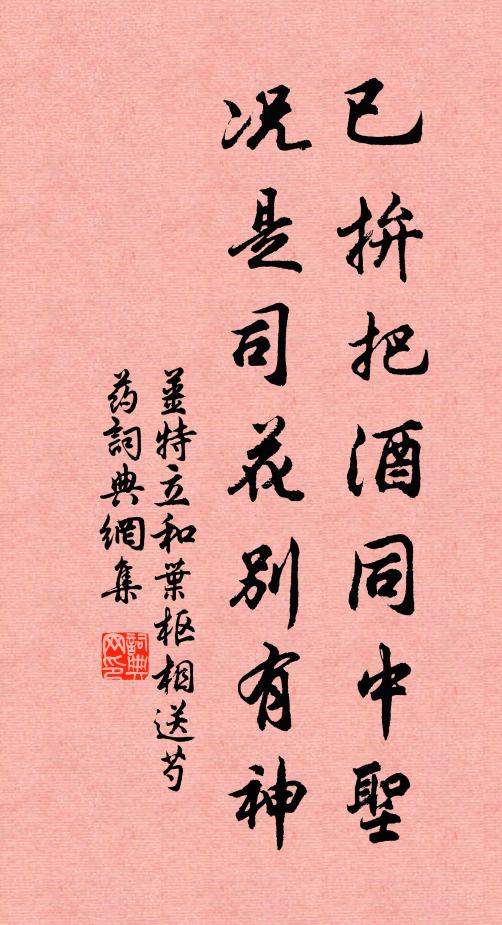 已拚把酒同中聖
况是司花別有神
姜特立和葉枢相送芍
药詞典網集
詞典网印